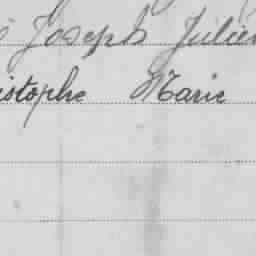 Joseph Julien
istophe Marie